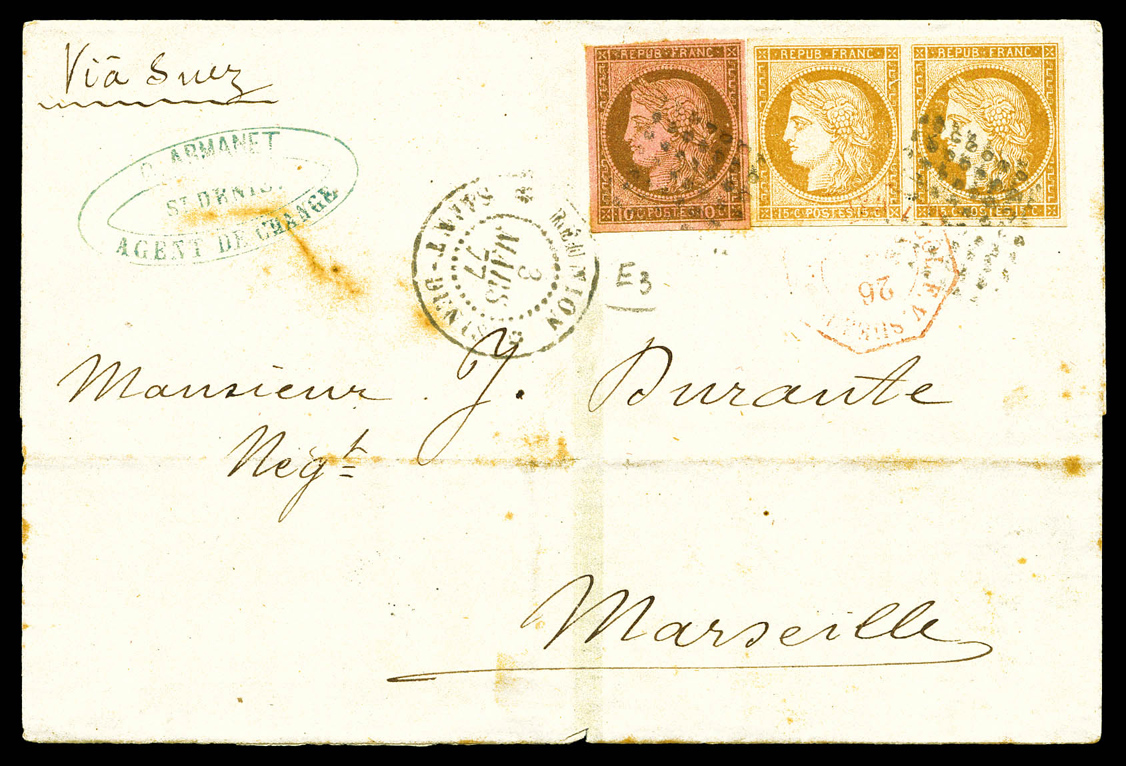 Viā Suez
ARMANET
ST DENIS.
AGENT DE CHANGE
REPUB. FRANC.
10 C. POSTES 10 C.
REPUB. FRANC.
15 C. POSTES 15 C.
REPUB. FRANC.
POSTES 15 C.
RÉUNION
SAINT-DENIS
3
MARS
77
E3
26
Monsieur J. Durante
Negt
Marseille